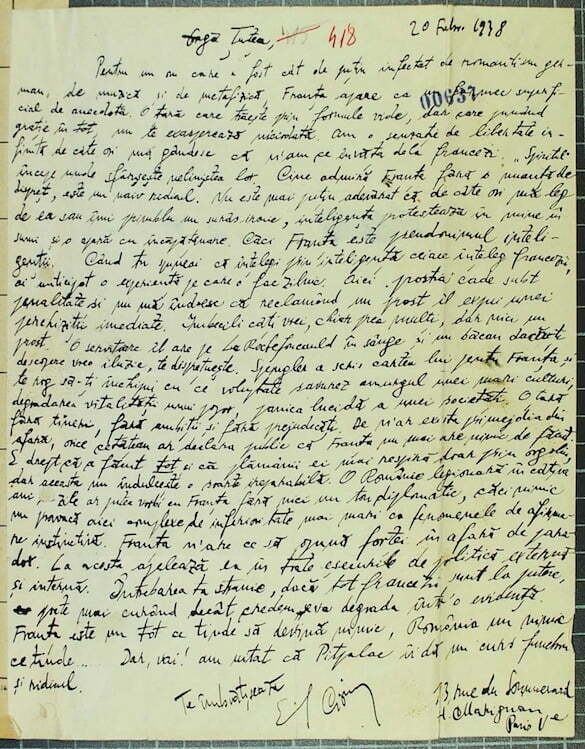 20 Febr. 1938
Dragă Țuțea, 418
Pentru un om care a fost cât de puțin infectat de romantism ger-
man, de muzică și de metafizică, Franța apare ca un farmec superfi-
cial de anecdotă. O țară care trăește prin formule vide, dar care punând
00637
grație în tot, nu te exasperează niciodată. Am o senzație de libertate in-
finită de câte ori mă gândesc că n'am ce învăța dela francezi. „Spiritul"
începe unde sfârșește neliniștea lor. Cine admiră Franța fără o nuanță de
dispreț, este un naiv ridicul. Nu este mai puțin adevărat că de câte ori mă leg
de ea sau îmi plimblu un surâs ironic, inteligența protestează în mine în-
sumi și o apără cu încăpățânare. Căci Franța este pseudonimul inteli-
genții. Când tu spuneai că înțelegi prin inteligență ceiace înțeleg francezii,
ai anticipat o experiență pe care o fac zilnic. Aici prostia cade subt
penalitate și nu mă îndoesc că reclamând un prost îl expui unei
perchiziții imediate. Imbecili câți vrei, chiar prea mulți, dar nici un
prost. O servitoare îl are pe La Rochefoucauld în sânge și un băcan dacă-ți
descopere vreo iluzie, te disprețuește. Spengler a scris cartea lui pentru Franța și
te rog să-ți închipui cu ce voluptate savurez amurgul unei mari culturi,
degradarea vitalității unui popor, panica lucidă a unei societăți. O țară
fără tineri, fără ambiții și fără prejudecăți. De n'ar exista primejdia din
afară, orice cetățean ar declara public că Franța nu mai are nimic de făcut.
E drept că a făcut tot și că plămânii ei mai respiră doar prin orgoliu,
dar aceasta nu îndulcește o soartă ireparabilă. O Românie legionară în câțiva
ani, ar putea vorbi cu Franța fără nici un ton diplomatic, căci nimic
nu provoacă aici complexe de inferioritate mai mari ca fenomenele de afirma-
re instinctivă. Franța n'are ce să opună forței în afară de para-
dox. La acesta apelează ea în toate eșecurile de politică externă
și internă. Întrebarea ta stranie, dacă tot francezii sunt la putere,
poate mai curând decât credem, se va degrada într'o evidență.
Franța este un tot ce tinde să devină nimic, România un nimic
ce tinde... Dar, vai! am uitat că Pițpalac îi dă un curs funebru
și ridicul.
Te îmbrățișează
Emil Cioran
13 rue du Sommerard
H. Marignan
Paris Ve